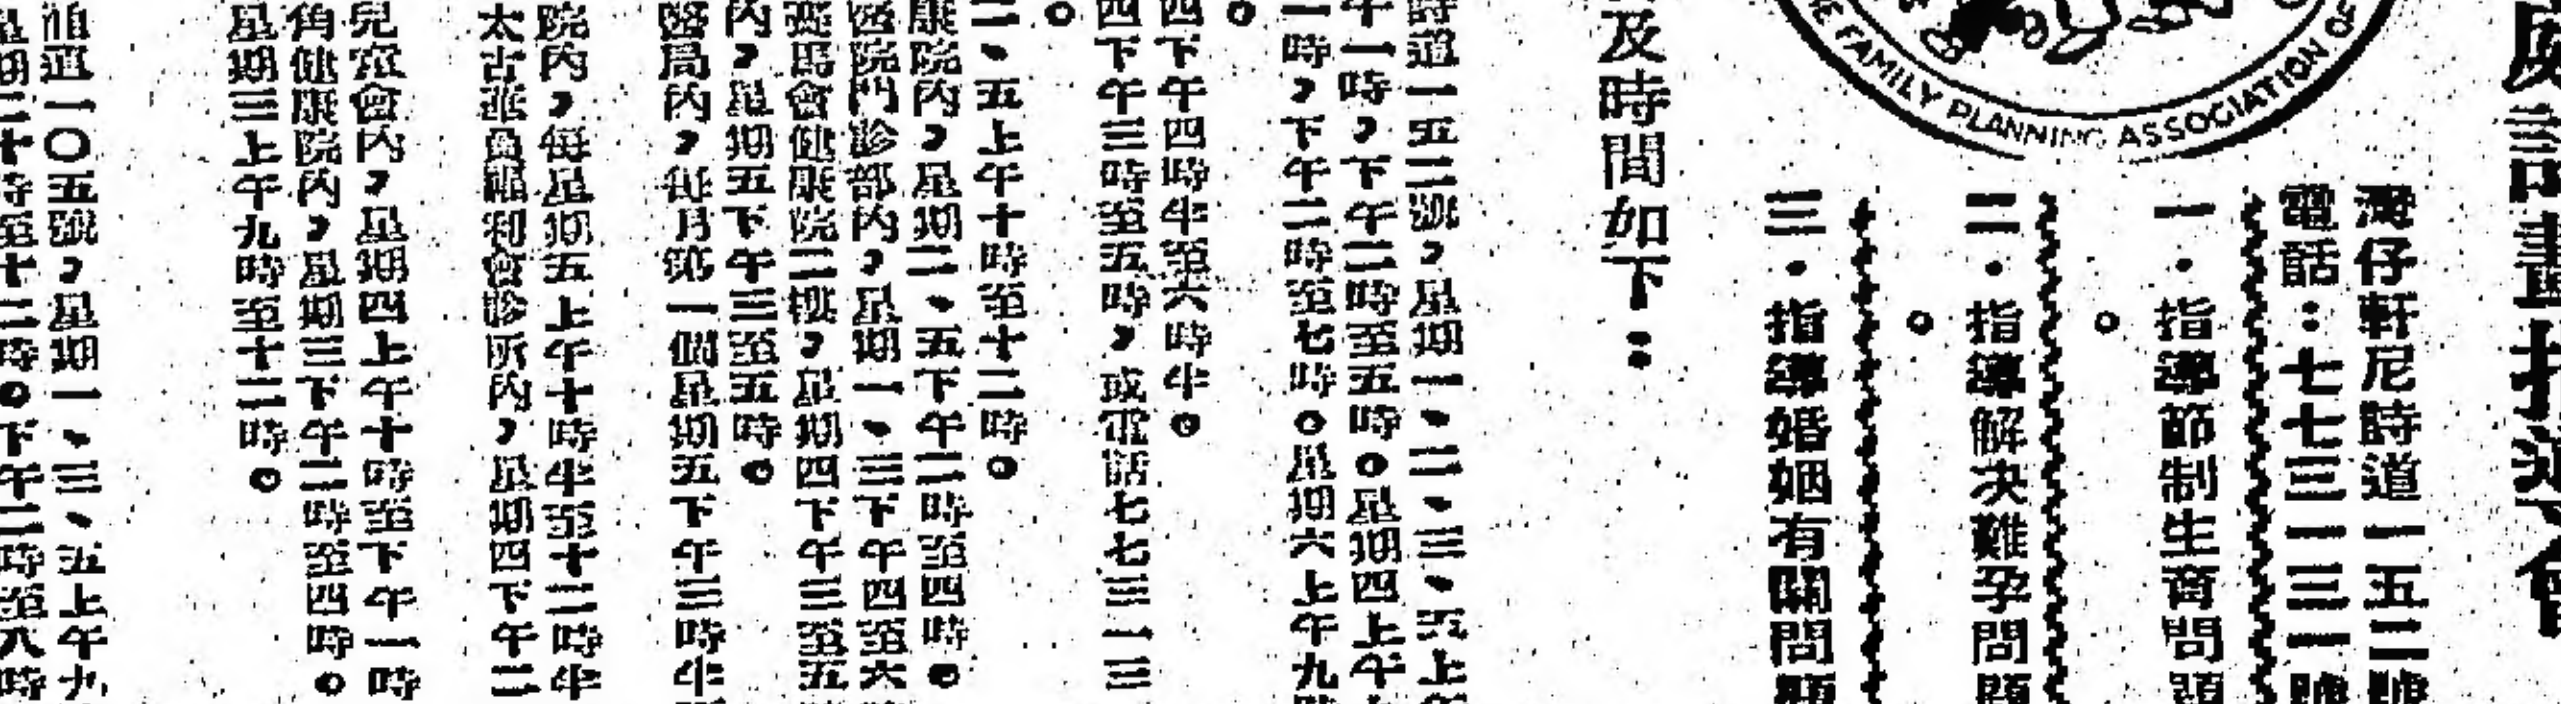 庭計畫指導會
THE FAMILY PLANNING ASSOCIATION OF
灣仔軒尼詩道一五二號
電話：七七三一三一號
一・指導節制生育問題
。
二・指導解決難孕問題
。
三・指導婚姻有關問題
及時間如下：
詩道一五二號，星期一、二、三、五上午
午一時，下午二時至五時。星期四上午
一時，下午二時至七時。星期六上午九時
。
四下午四時半至六時半。
四下午三時至五時，或電話七七三一三
。
二、五上午十時至十二時。
康院內，星期二、五下午二時至四時。
醫院門診部內，星期一、三下午四至六
馬會健康院二樓，星期四下午三至五
內，星期五下午三至五時。
醫局內，每月第一個星期五下午三時半
院內，每星期五上午十時半至十二時半
太古華員福利會診所內，星期四下午二
兒童會內，星期四上午十時至下午一時
角健康院內，星期三下午二時至四時。
星期三上午九時至十二時。
道一〇五號，星期一、三、五上午九
星期二十時至十二時。下午二時至八時